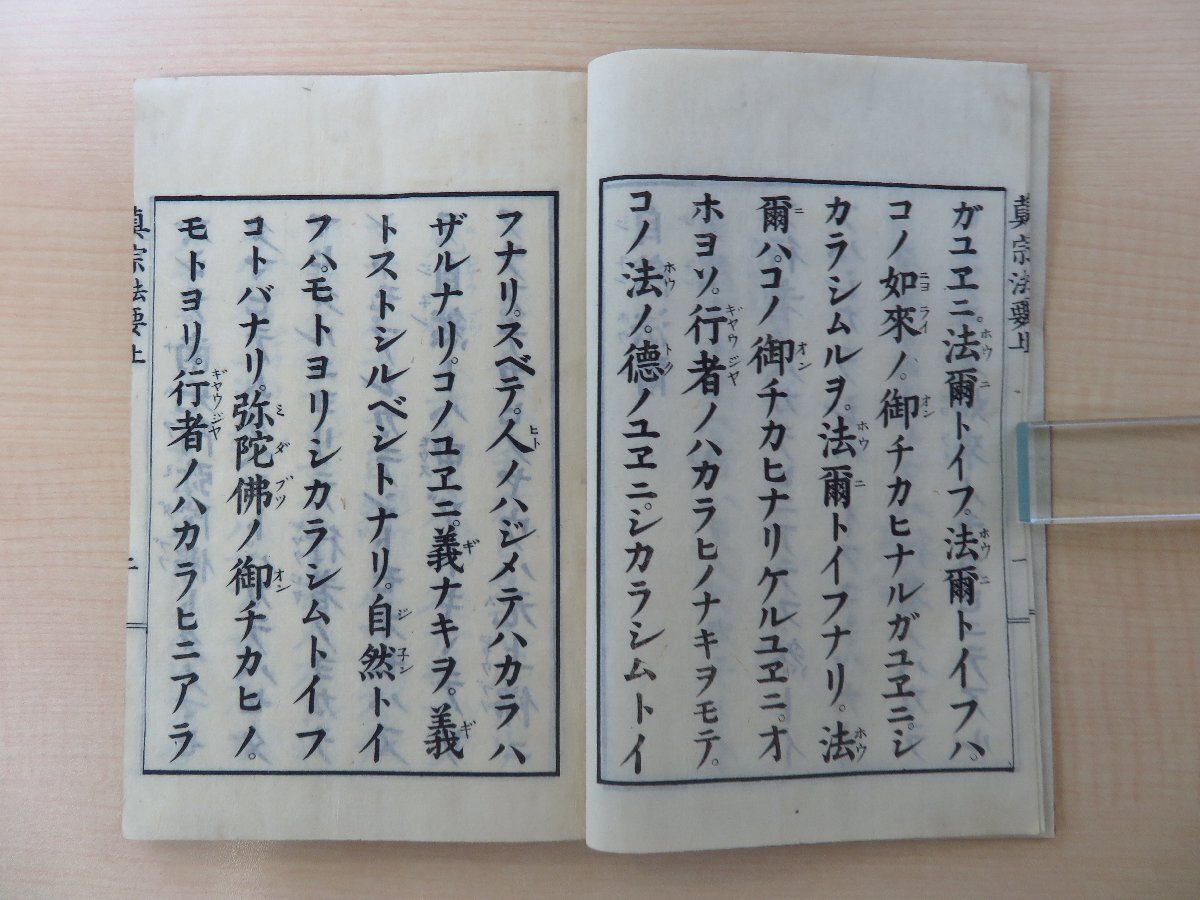 眞宗法要上
一
ガユヱニ。法爾トイフ。法爾トイフハ。
コノ如來ノ。御チカヒナルガユヱニ。シ
カラシムルヲ。法爾トイフナリ。法
爾ハ。コノ御チカヒナリケルユヱニ。オ
ホヨソ。行者ノハカラヒノナキヲモテ。
コノ法ノ。德ノユヱニ。シカラシムトイ
フナリ。スベテ。人ノハジメテハカラハ
ザルナリ。コノユヱニ。義ナキヲ。義
トストシルベシトナリ。自然トイ
フハ。モトヨリシカラシムトイフ
コトバナリ。弥陀佛ノ御チカヒノ。
モトヨリ。行者ノハカラヒニアラ
眞宗法要上
二